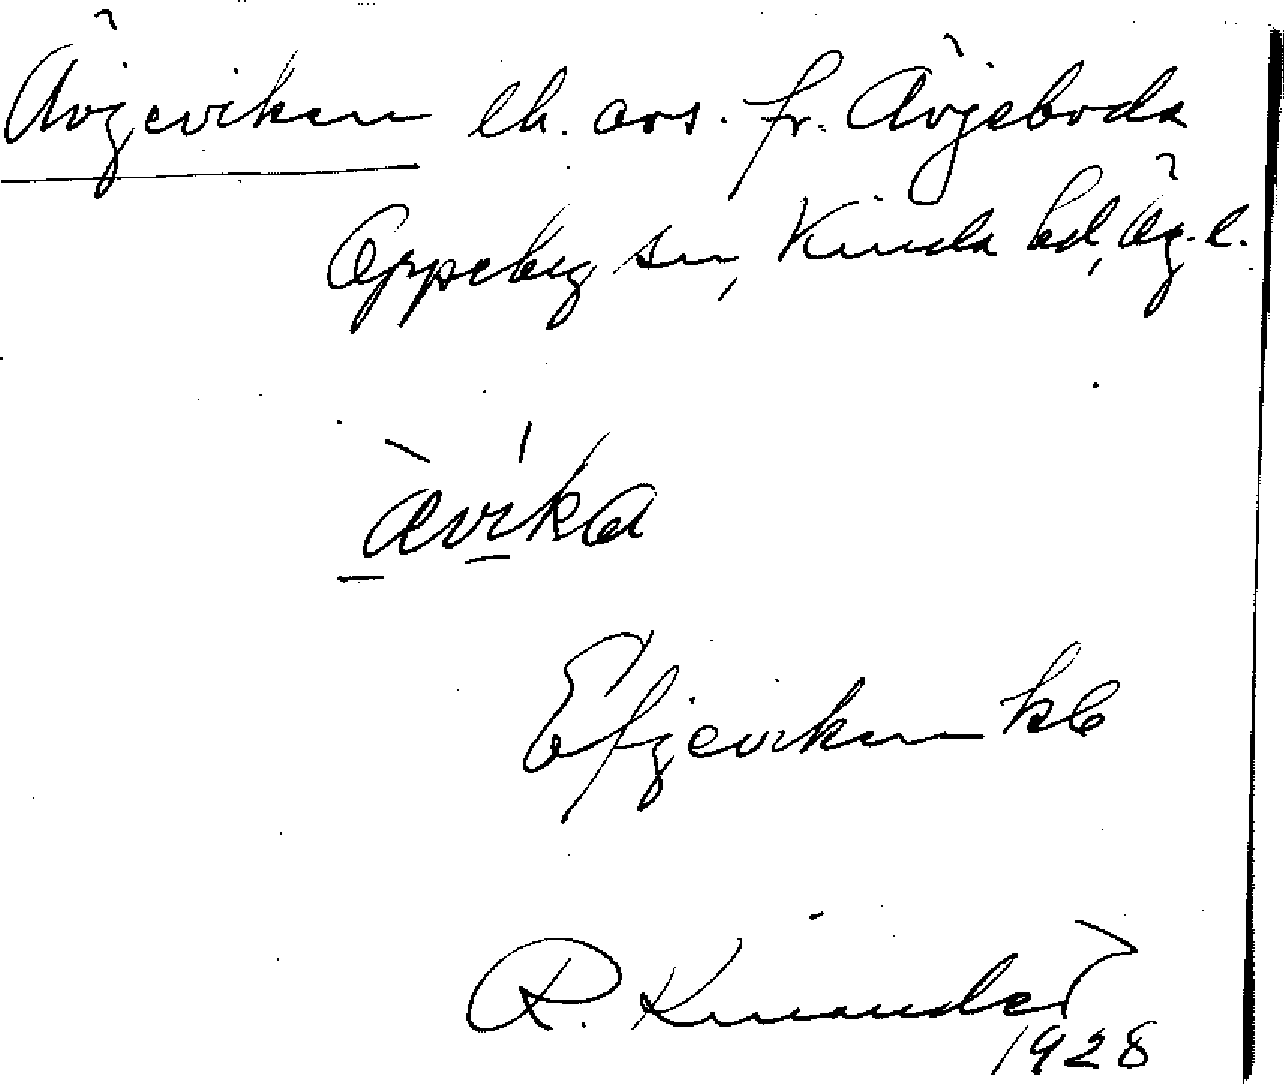 Ävjeviken lh. avs. fr. Ävjeboda
Oppeby sn, Kinda hd, Ög. l.
ævika
Efjeviken kb
R. Kinander
1928